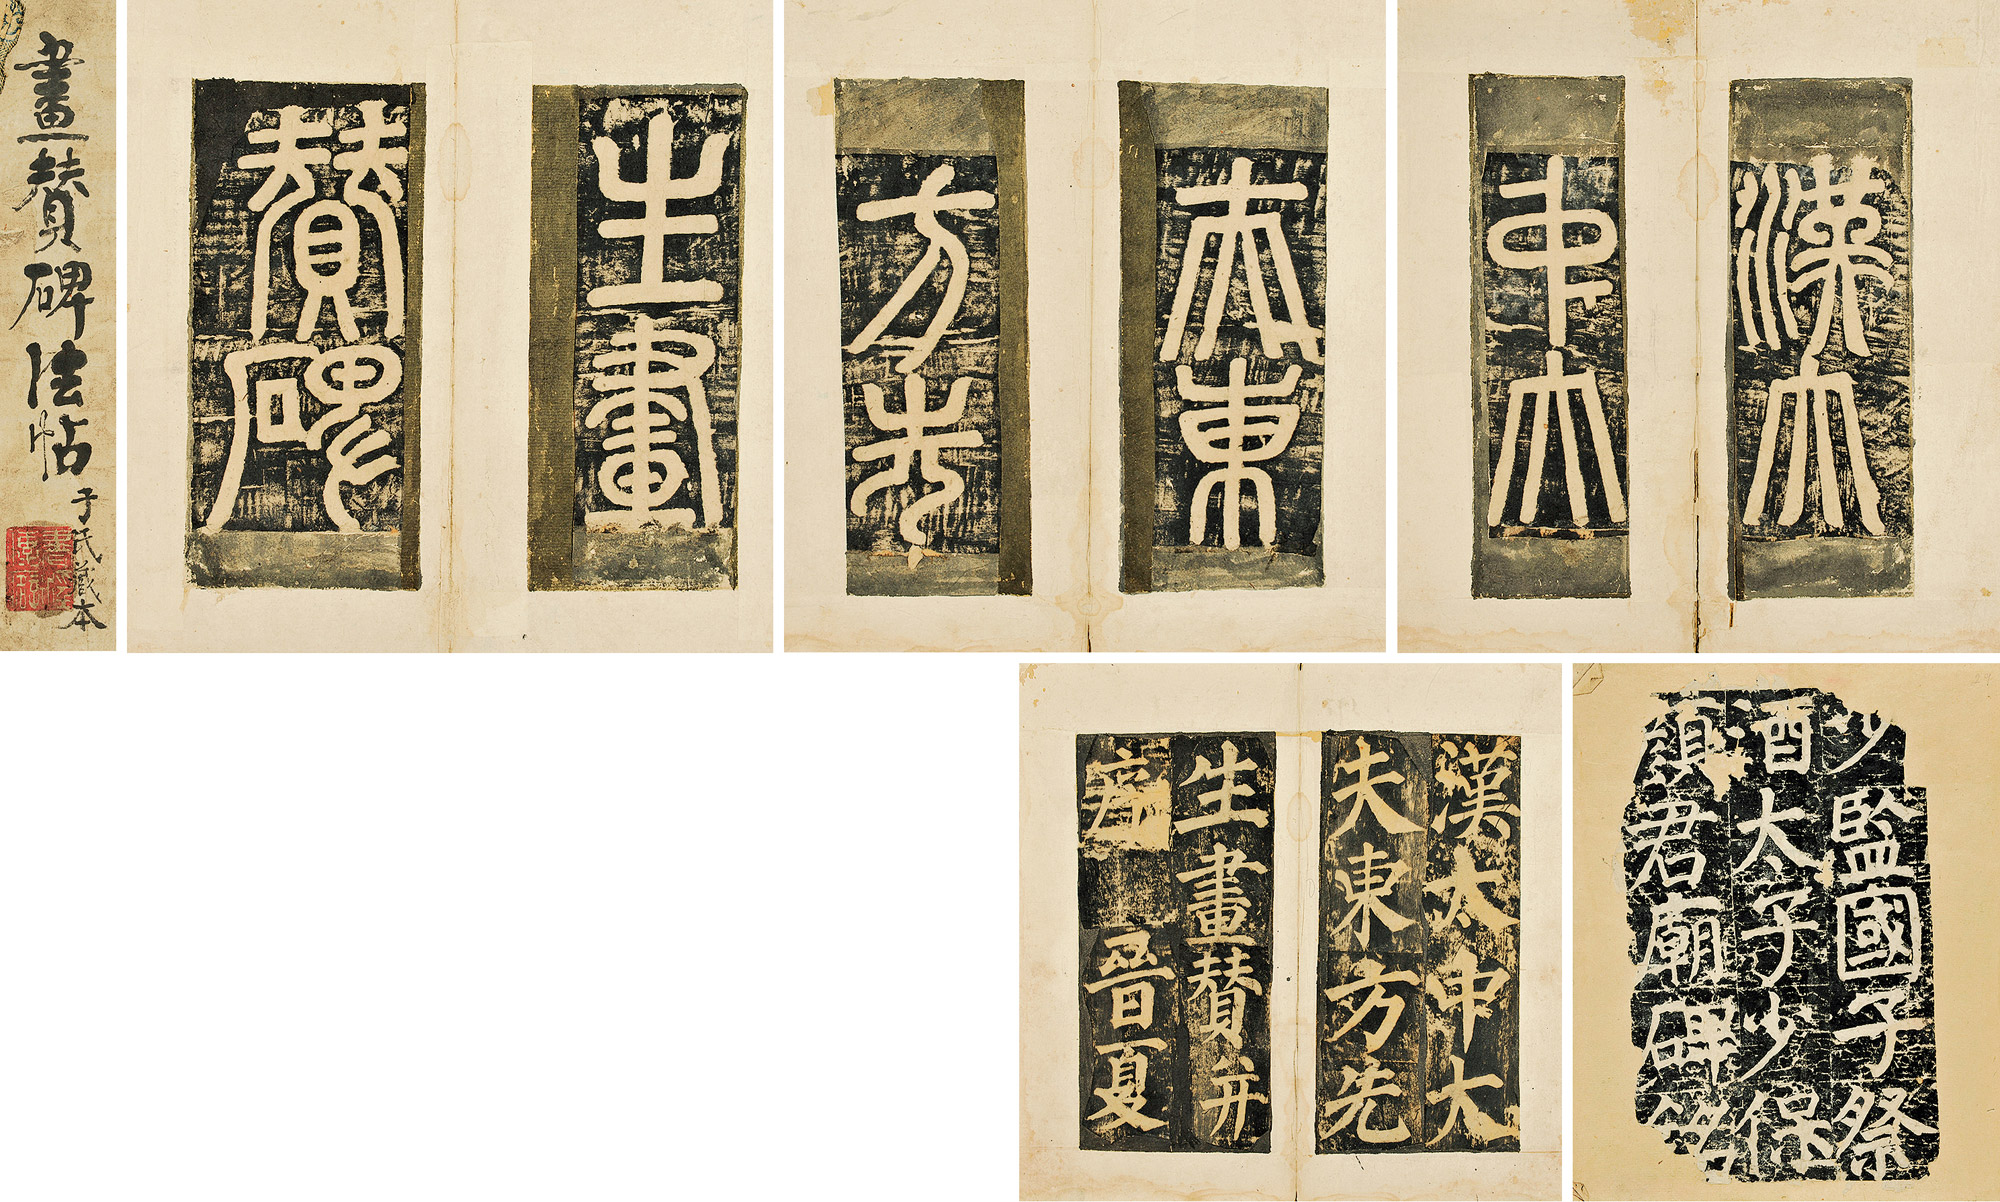 畫賛碑法帖
于氏藏本
漢大
中大
夫東
方先
生畫
贊碑
漢太中大
夫東方先
生畫賛并
序 晉夏
少監國子祭
酒太子少保
顏君廟碑銘